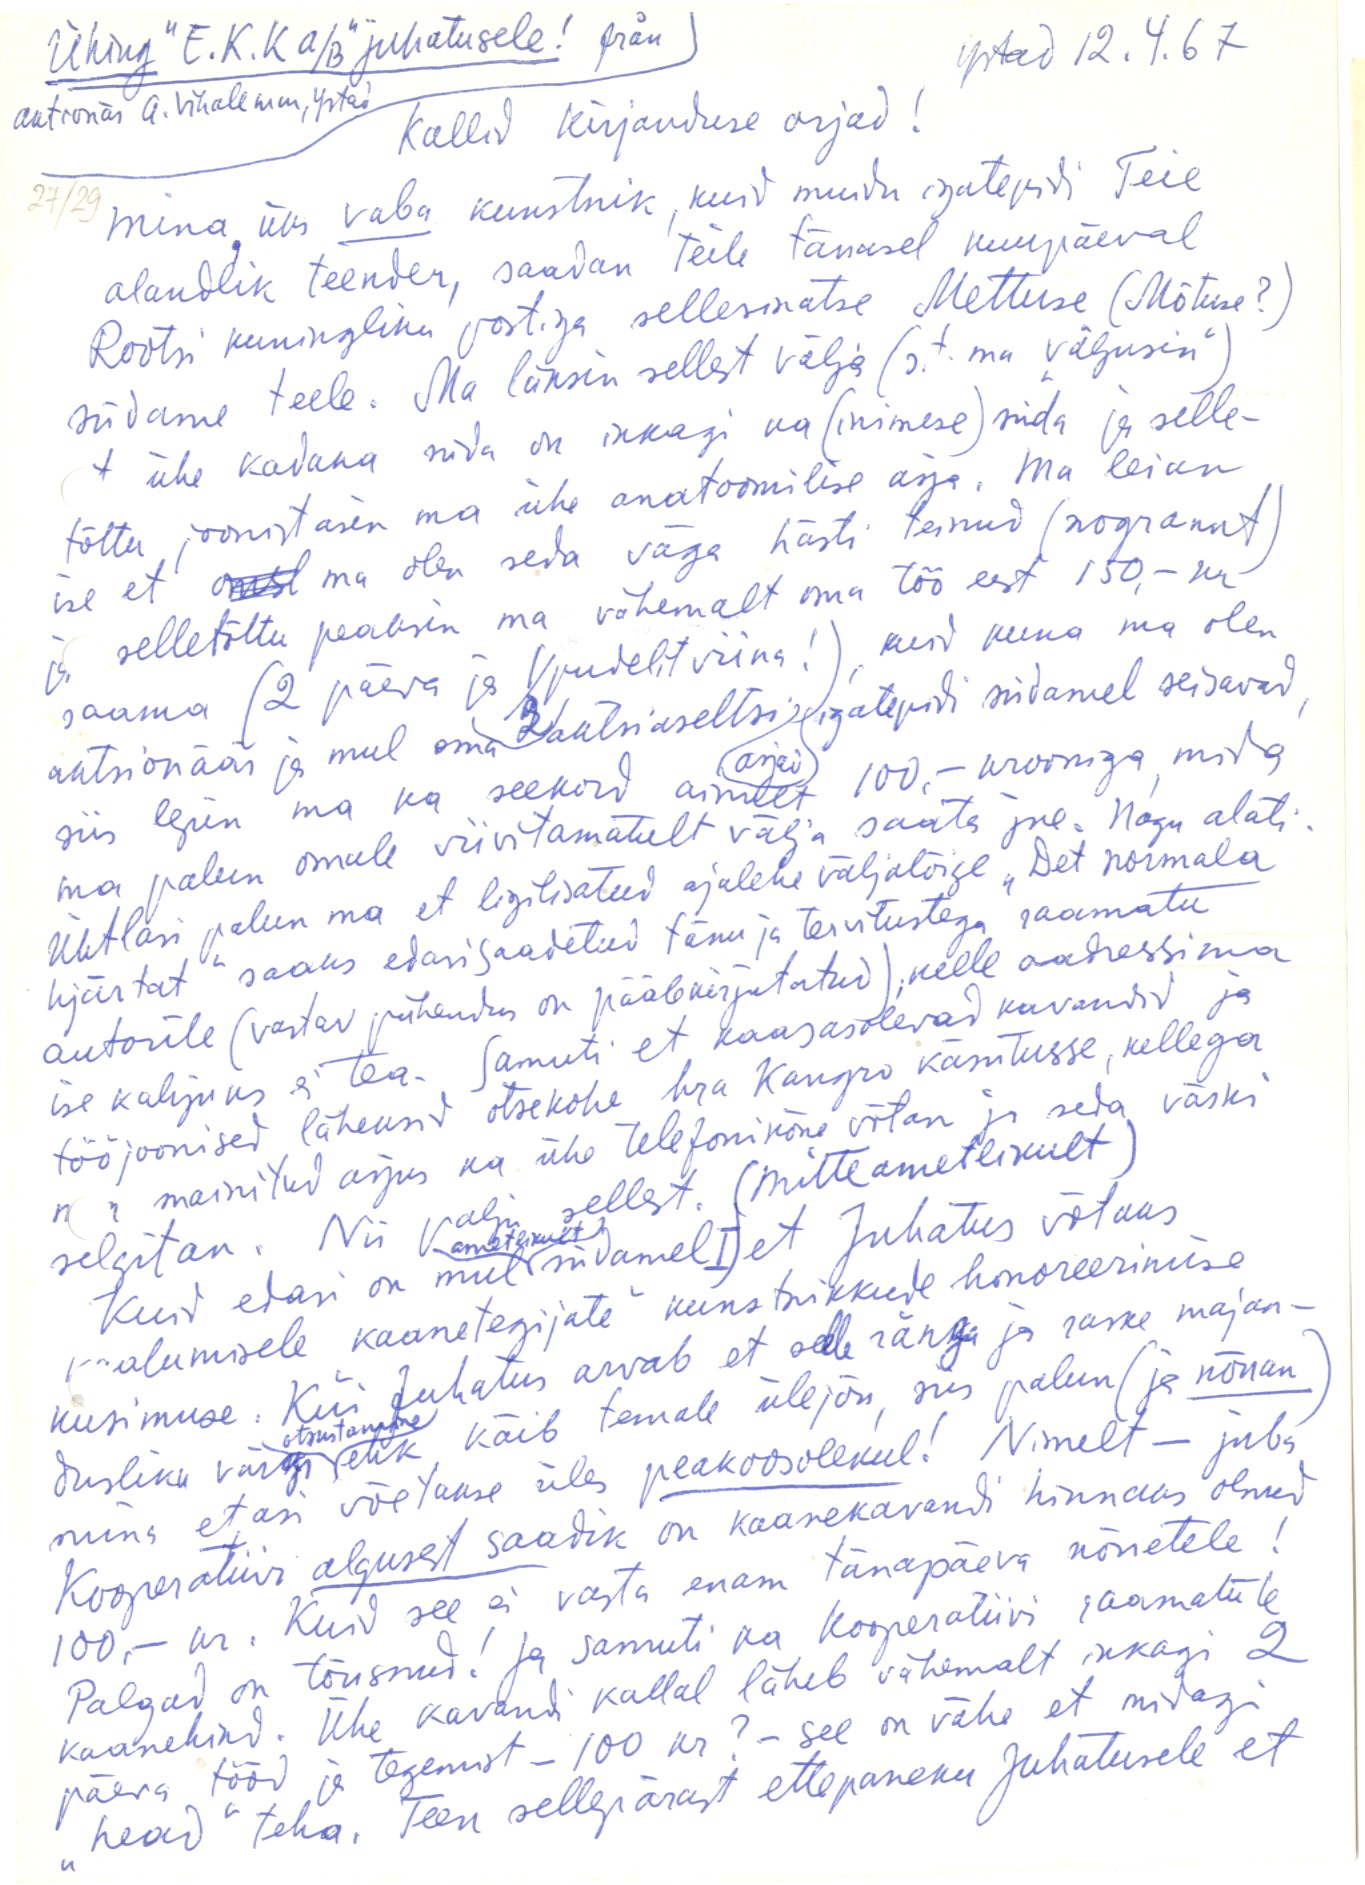 Ühing "E.K.K a/B" juhatusele! från
Ystad 12.4.67
aktionär A. Vihalemm, Ystad
Kallid Kirjanduse orjad!
27/29
Mina, üks vaba kunstnik, kuid muidu igatepidi Teie
alandlik teender, saadan Teile tänasel kuupäeval
Rootsi kuningliku postiga sellesinatse Mettuse (Mõtuse?)
südame teele. Ma läksin sellest välja (s.t. ma "väljusin")
t ühe kadaka süda on ikkagi ka (inimese) süda ja selle-
tõttu joonistasin ma ühe anatoomilise asja. Ma leian
ise et ma olen seda väga hästi teinud (nogrannt)
ja selletõttu peaksin ma vähemalt oma töö eest 150,- kr
saama (2 päeva ja V pudelit viina!), kuid kuna ma olen
aktsionäär ja mul oma aktsiaseltsi asjad igatepidi südamel seisavad,
siis lepin ma ka seekord ainult 100,- krooniga, mida
ma palun omale viivitamatult välja saata jne. Nagu alati.
Ühtlasi palun ma et ligilisatud ajalehe väljalõige "Det normala
hjärtat" saaks edasisaadetud tänu ja tervitustega raamatu
autorile (vastav pühendus on pääle kirjutatud), kelle aadressi ma
ise kahjuks ei tea. Samuti et kaasasolevad kavandid ja
tööjoonised läheksid otsekohe hra Kangro käsitusse, kellega
mainitud asjus ka ühe telefonikõne võtan ja seda värki
selgitan. Nii palju sellest. (mitteametlikult)
Kuid edasi on mul (ametlikult) südamel I) et Juhatus võtaks
kaalumisele "kaanetegijate" kunstnikkude honoreerimise
küsimuse. Kui Juhatus arvab et selle ränga ja raske majan-
dusliku värgi otsustamine ehk käib temale ülejõu, siis palun (ja nõuan)
mina et asi võetakse üles peakoosolekul! Nimelt — juba
Kooperatiivi algusest saadik on kaanekavandi hinnaks olnud
100,- kr. Kuid see ei vasta enam tänapäeva nõuetele!
Palgad on tõusnud! Ja samuti ka Kooperatiivi raamatute
kaanehind. Ühe kavandi kallal läheb vähemalt ikkagi 2
päeva tööd ja tegemist - 100 kr? - see on vähe et midagi
"head" teha. Teen sellepärast ettepaneku Juhatusele et